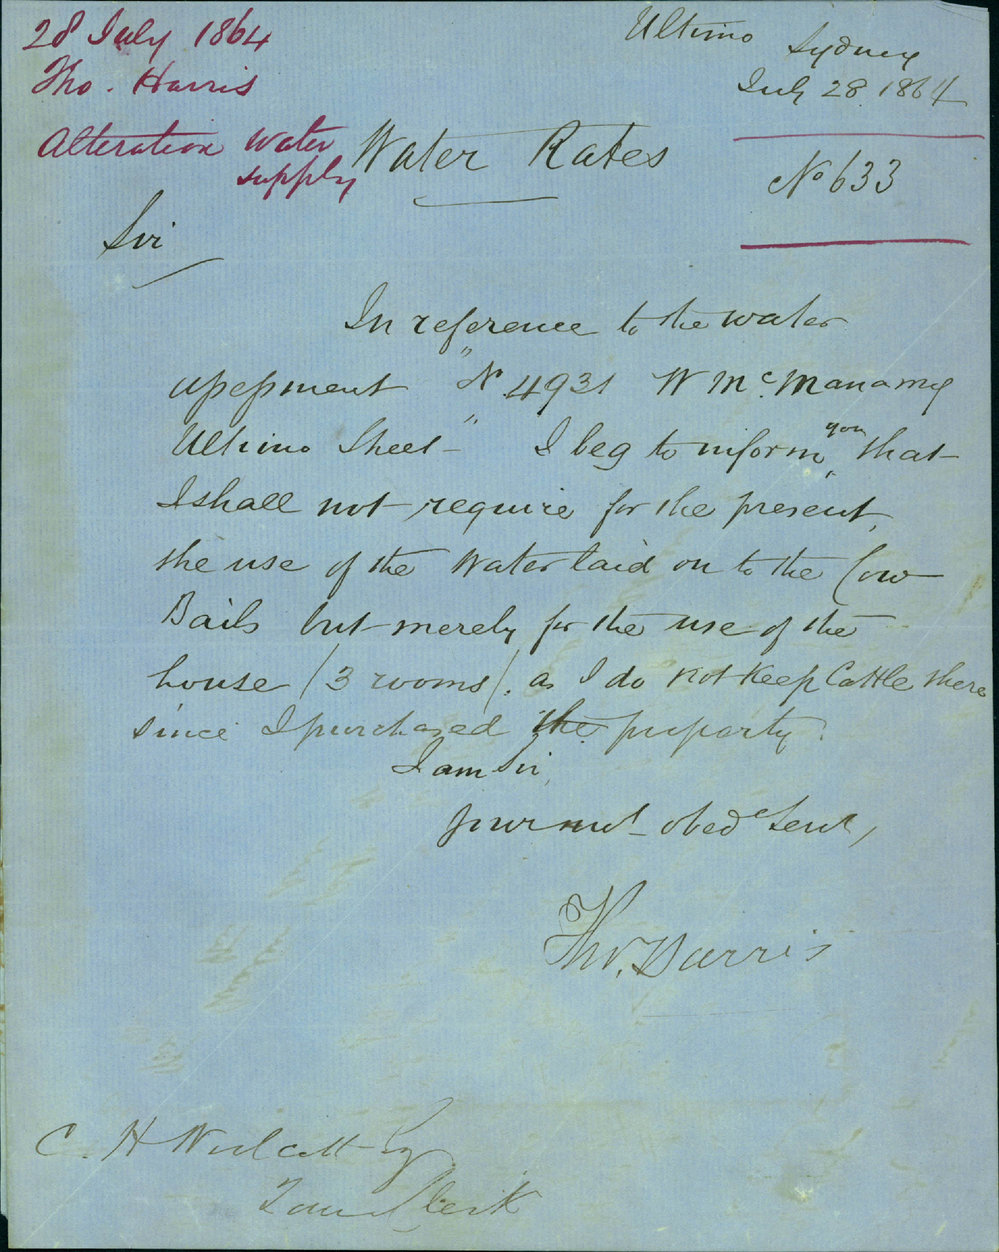 28 July 1864
Tho. Harris
Alteration water
supply
Ultimo Sydney
July 28. 1864
Water Rates
No 633
Sir
In reference to the water
assessment "No 4931 W McManamey
Ultimo Street" I beg to inform you that
I shall not require for the present,
the use of the Water laid on to the Cow
Bails but merely for the use of the
house (3 rooms). as I do not keep Cattle there
since I purchased the property.
I am Sir,
your most obed Servt,
Tho. Harris
C. H Woolcott Esq
Town Clerk